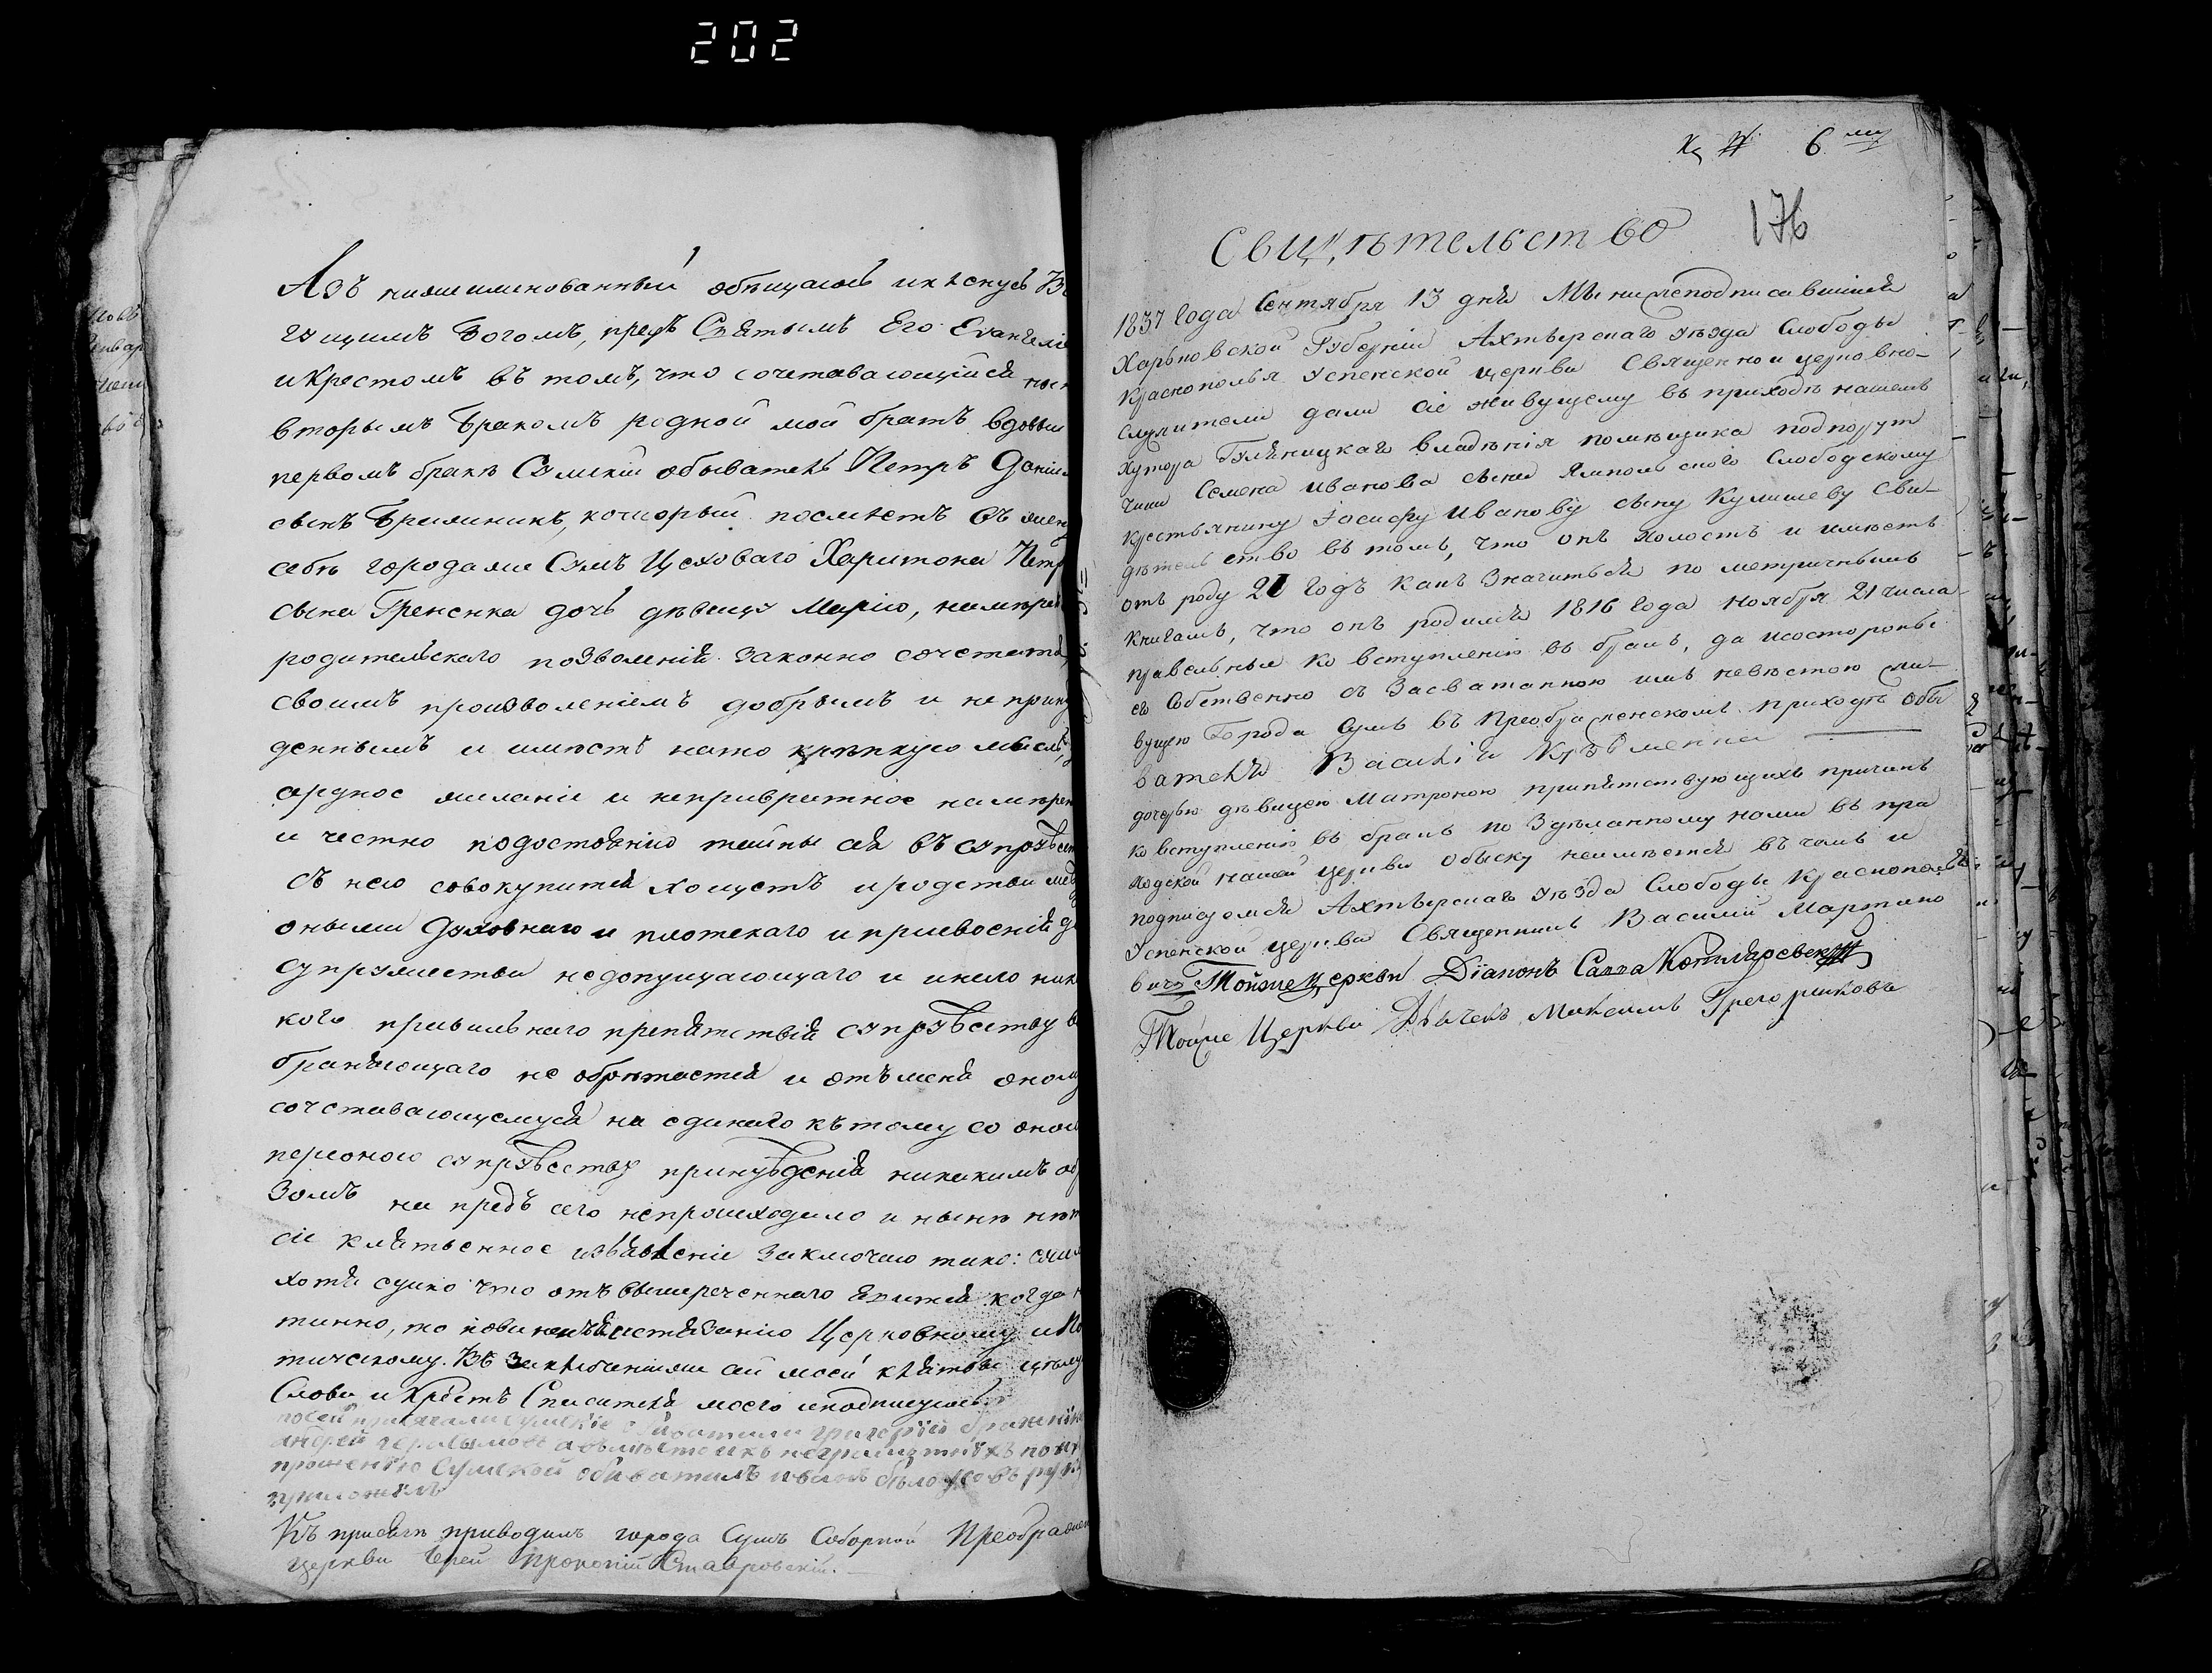 202
Азъ нижеименованный обѣщаюсь и кленусь В
гущимъ Богомъ, предъ Святымъ Его Еvангелі
и Крестомъ въ томъ, что сочетавающийся
вторымъ бракомъ родной мой братъ вдовы
первомъ бракѣ Сумскій обыватель Петръ Даніи
сынъ Бражникъ, который поемлетъ въ жен
себѣ города Сумъ Цеховаго Харитона Петр
сына Гренснка дочь дѣвицу Марію, намѣре
родительскаго позволенія законно сочетат
своимъ произволеніемъ добрымъ и не прину
деннымъ и имѣетъ на то крѣпкую мысль,
сердное желаніе и непривратное намѣрен
и честно подостоянію тайны сея въ супруж
съ нею совокупитися хощетъ и родства меж
оными Духовнаго и плотскаго и присвоенія д
супружества недопущающаго и инаго ник
кого правильнаго препятствія супружеству в
браняющаго не обрѣтается и отъ меня оном
сочетавающемуся на единаго къ тому со оно
персоною супружеству принужденія никакимъ об
зомъ на предъ сего непроисходило и нынѣ нѣт
сіе клятвенное изъявленіе заключаю тако: если
хотя едино что отъ вышереченнаго явится когда н
тинно, то повиненъ истязанію Церковному и По
тическому. Въ заключеніи же сей моей клятвы цѣлую
Слова и Крестъ Спасителя моего и подписуюсь.
посей присягали Сумскіе обиватели григорій бражнік
андрей герасымовъ а вьместо ихъ неграмотныхъ по их
прошенію Сумской обиватель иванъ бѣлоусовъ рук
приложилъ
Къ присягѣ приводилъ города Сумъ Соборной Преображен
церкви Іерей Прокопій Ставровскій.
Къ № 6му
176
Свидѣтельство
1837 года Сентября 13 дня Мы нижеподписавшіеся
Харьковской Губерніи Ахтырскаго уѣзда Слободы
Краснополья Успенской церкви Священно и церковно-
служители дали сіе живущему въ приходѣ нашемъ
хутора Гулѣницкаго владѣнія помѣщика подпорут
чика Семена Иванова сына Ямпольского Слободскому
крестьянину Іосифу Иванову сыну Кулишеву сви-
дѣтельство въ томъ, что онъ холостъ и имѣетъ
отъ роду 21 годъ какъ значитьси по метричнымъ
книгамъ, что онъ родился 1816 года ноября 21 числа
правельныя ко вступленію въ бракъ, да изостороны
его собственно съ засватанною имъ невѣстою жи-
вущею города Сумъ въ Преображенскомъ приходѣ обы
вателя Василія Кузьменка
дочерью дѣвицею Матроною припятствующихъ причинъ
ко вступленію въ бракъ по здѣланному нами въ при
ходской нашей церкви обыску неимѣется въ чемъ и
подписуемся Ахтырскаго уѣзда Слободы Краснополья
Успенской церкви Священникъ Василій Мартино
вичъ Тойже Церкви Діаконъ Савва Котляревскій
Тойже Церкви Дьячекъ Максимъ Грегориковъ